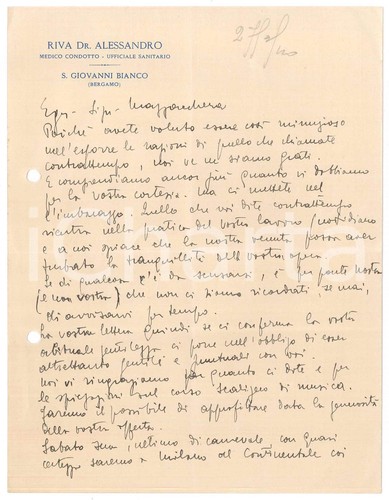 27/2/20
RIVA DR. ALESSANDRO
MEDICO CONDOTTO - UFFICIALE SANITARIO
S. GIOVANNI BIANCO
(BERGAMO)
Egr. Sig.
Poichè avete voluto essere così minuzioso
nell'esporre le ragioni di quello che chiamate
contrattempo, noi ve ne siamo grati.
E comprendiamo ancor più quanto vi dobbiamo
per la vostra cortesia. Ma ci mettete nel
l'imbarazzo. Quello che voi dite contrattempo
rientra nella pratica del vostro lavoro quotidiano
e a noi spiace che la nostra venuta possa aver
turbato la tranquillità dell'vostra opera.
Se di qualcosa c'è da scusarsi, è per parte nostra
(e non vostra) che non ci siamo ricordati, se mai,
di avvisarvi per tempo.
La vostra lettera quindi se ci conferma la vostra
abituale gentilezza ci pone nell'obbligo di essere
altrettanto gentili e puntuali con voi.
Noi vi ringraziamo per quanto ci dite e per
le spiegazioni sul corso scaligero di musica.
Faremo il possibile di approfittare data la generosità
della vostra offerta.
Sabato sera, ultimo di carnevale, con quasi
certezza saremo a Milano al Continentale coi